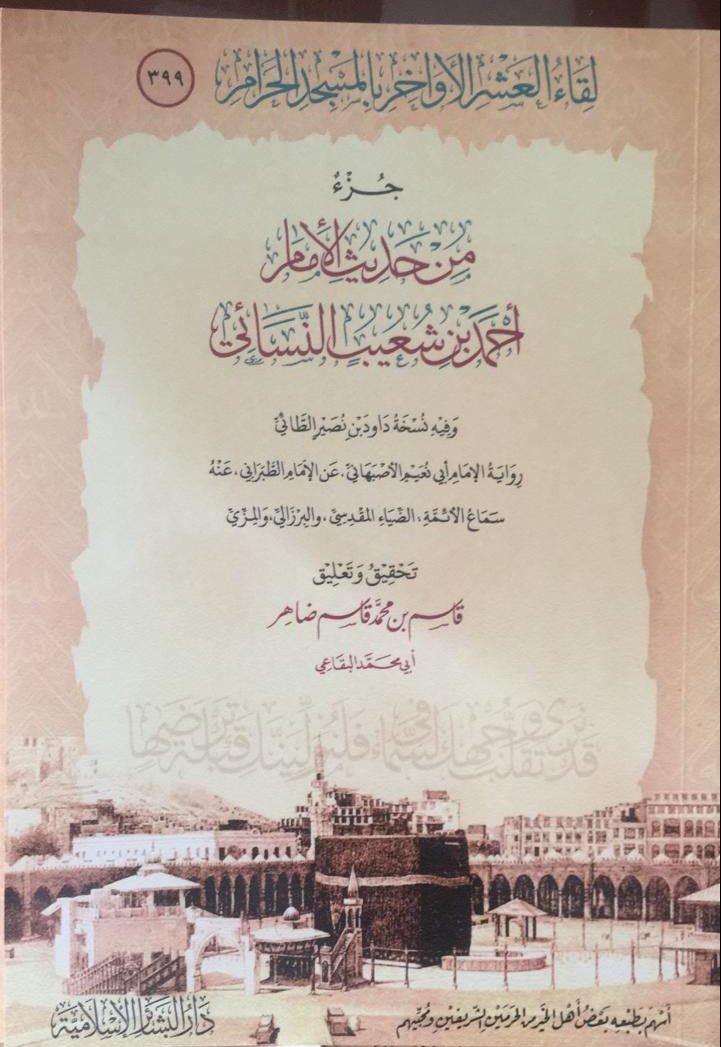 لِقَاءُ العَشْرِ الأَوَاخِرِ بِالمَسْجِدِ الحَرَامِ
٣٩٩
جُزْءٌ
مِنْ حَدِيثِ الإِمَامِ
أَحْمَدَ بْنِ شُعَيبٍ النَّسَائِيِّ
وَفِيهِ نُسْخَةُ دَاودَ بْنِ نُصَيْرٍ الطَّائيِّ
رِوَايَةُ الإِمَامِ أَبي نُعَيْمٍ الأَصْبَهَانيِّ، عَنِ الإِمَامِ الطَّبَرَانيِّ، عَنْهُ
سَمَاعُ الأَئمَّةِ: الضِّيَاءِ المَقْدِسِيِّ، والبِرْزَاليِّ، وَالمِزِّيِّ
تَحْقِيْقُ وَتَعْلِيْق
قاسم بن محمَّد قاسم ضاهر
أبي محمَّد البقاعي
قد نرى تقلب وجهك في السماء فلنولينك قبلة ترضىها
دَارُ البَشَائِرِ الإِسْلَامِيَّة
أَسْهَمَ بِطَبْعِهِ بَعْضُ أَهْلِ الخَيْرِ مِنَ الحَرَمَيْنِ الشَّرِيفَيْنِ وَمُحِبِّيهِم